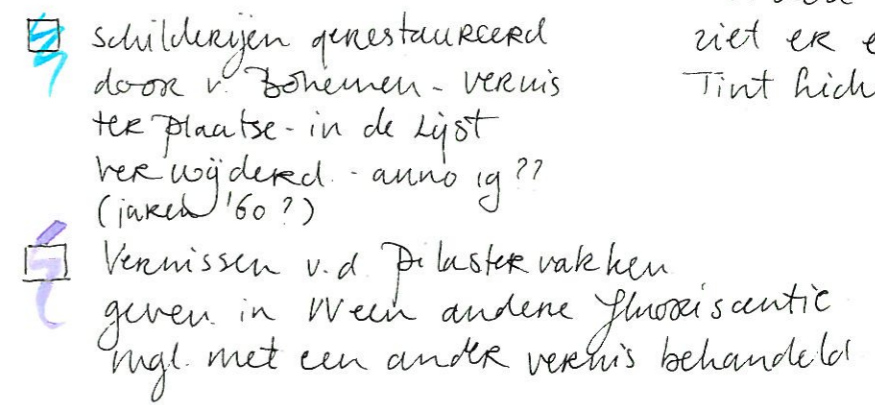 schilderijen gerestaureerd
door v. Bohemen - vernis
ter plaatse - in de Lijst
verwijderd - anno 19??
(jaren '60?)
Vernissen v.d. Pilastervakken
geven in een andere fluoriscentie
mgl. met een ander vernis behandeld
ziet er
Tint